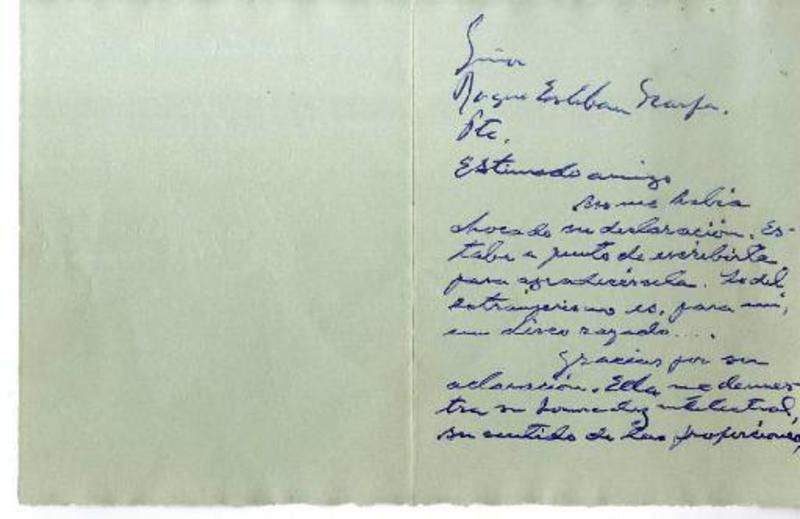 Señor
Roque Esteban Scarpa.
Pte.
Estimado amigo
no me había
chocado su declaración. Es-
taba a punto de escribirle
para agradecérsela. Lo del
extranjerismo es, para mí,
un disco rayado....
Gracias por su
aclaración. Ella me demues-
tra su honradez intelectual,
su sentido de las proporciones,